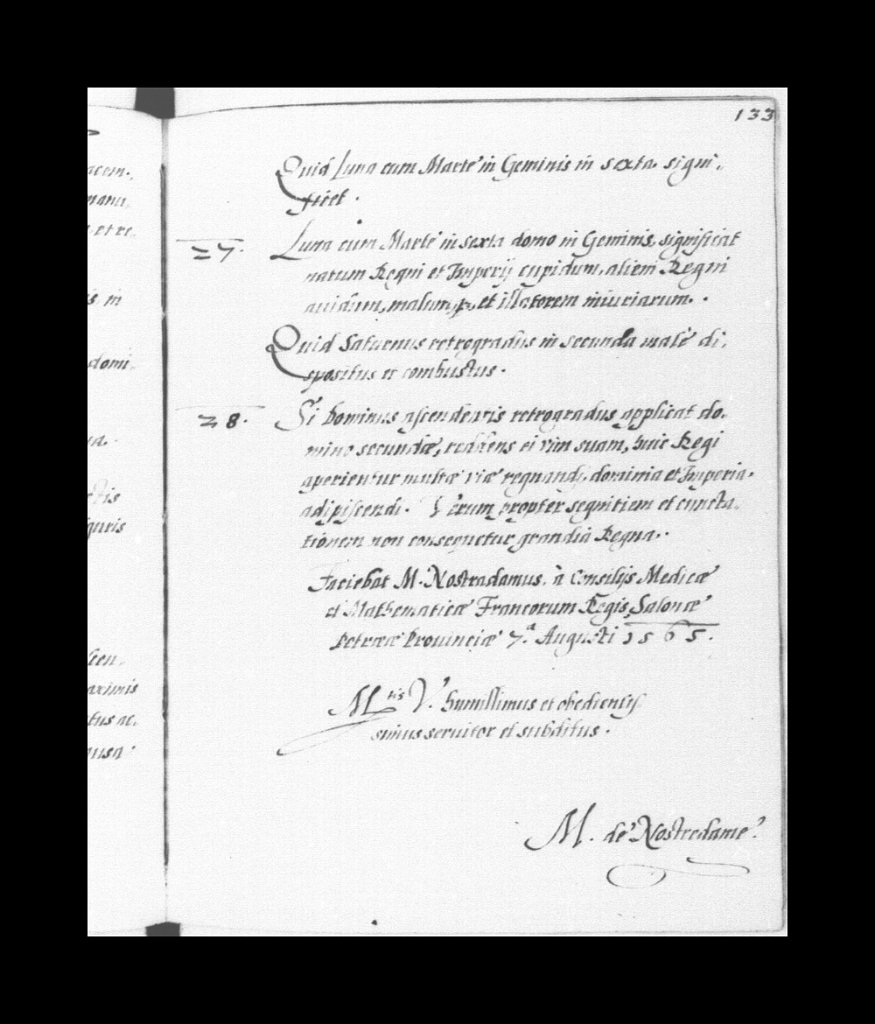 133
Quid Luna cum Marte in Geminis in sexta signi-
ficet.
27. Luna cum Marte in sexta domo in Geminis, significat
natum Regni et Imperij cupidum, alieni Regni
auidum, malum, et illatorem iniuriarum.
Quid Saturnus retrogradus in secunda male di-
spositus et combustus.
28. Si dominus ascendentis retrogradus applicat do-
mino secundæ, reddens ei vim suam, huic Regi
aperientur multæ viæ regnandi, dominia et Imperia
adipiscendi. Verum propter segnitiem et cuncta-
tionem non consequetur grandia Regna.
Faciebat M. Nostradamus, à Consilijs Medicæ
et Mathematicæ Francorum Regis, Salonæ
Petrææ Prouinciæ 7.a Augusti 1565.
M.tis V. humillimus et obedientis-
simus seruitor et subditus.
M. de Nostredame.
acem.
manu.
et re.
is in
domi-
ua.
guris
aximis
tus ac.